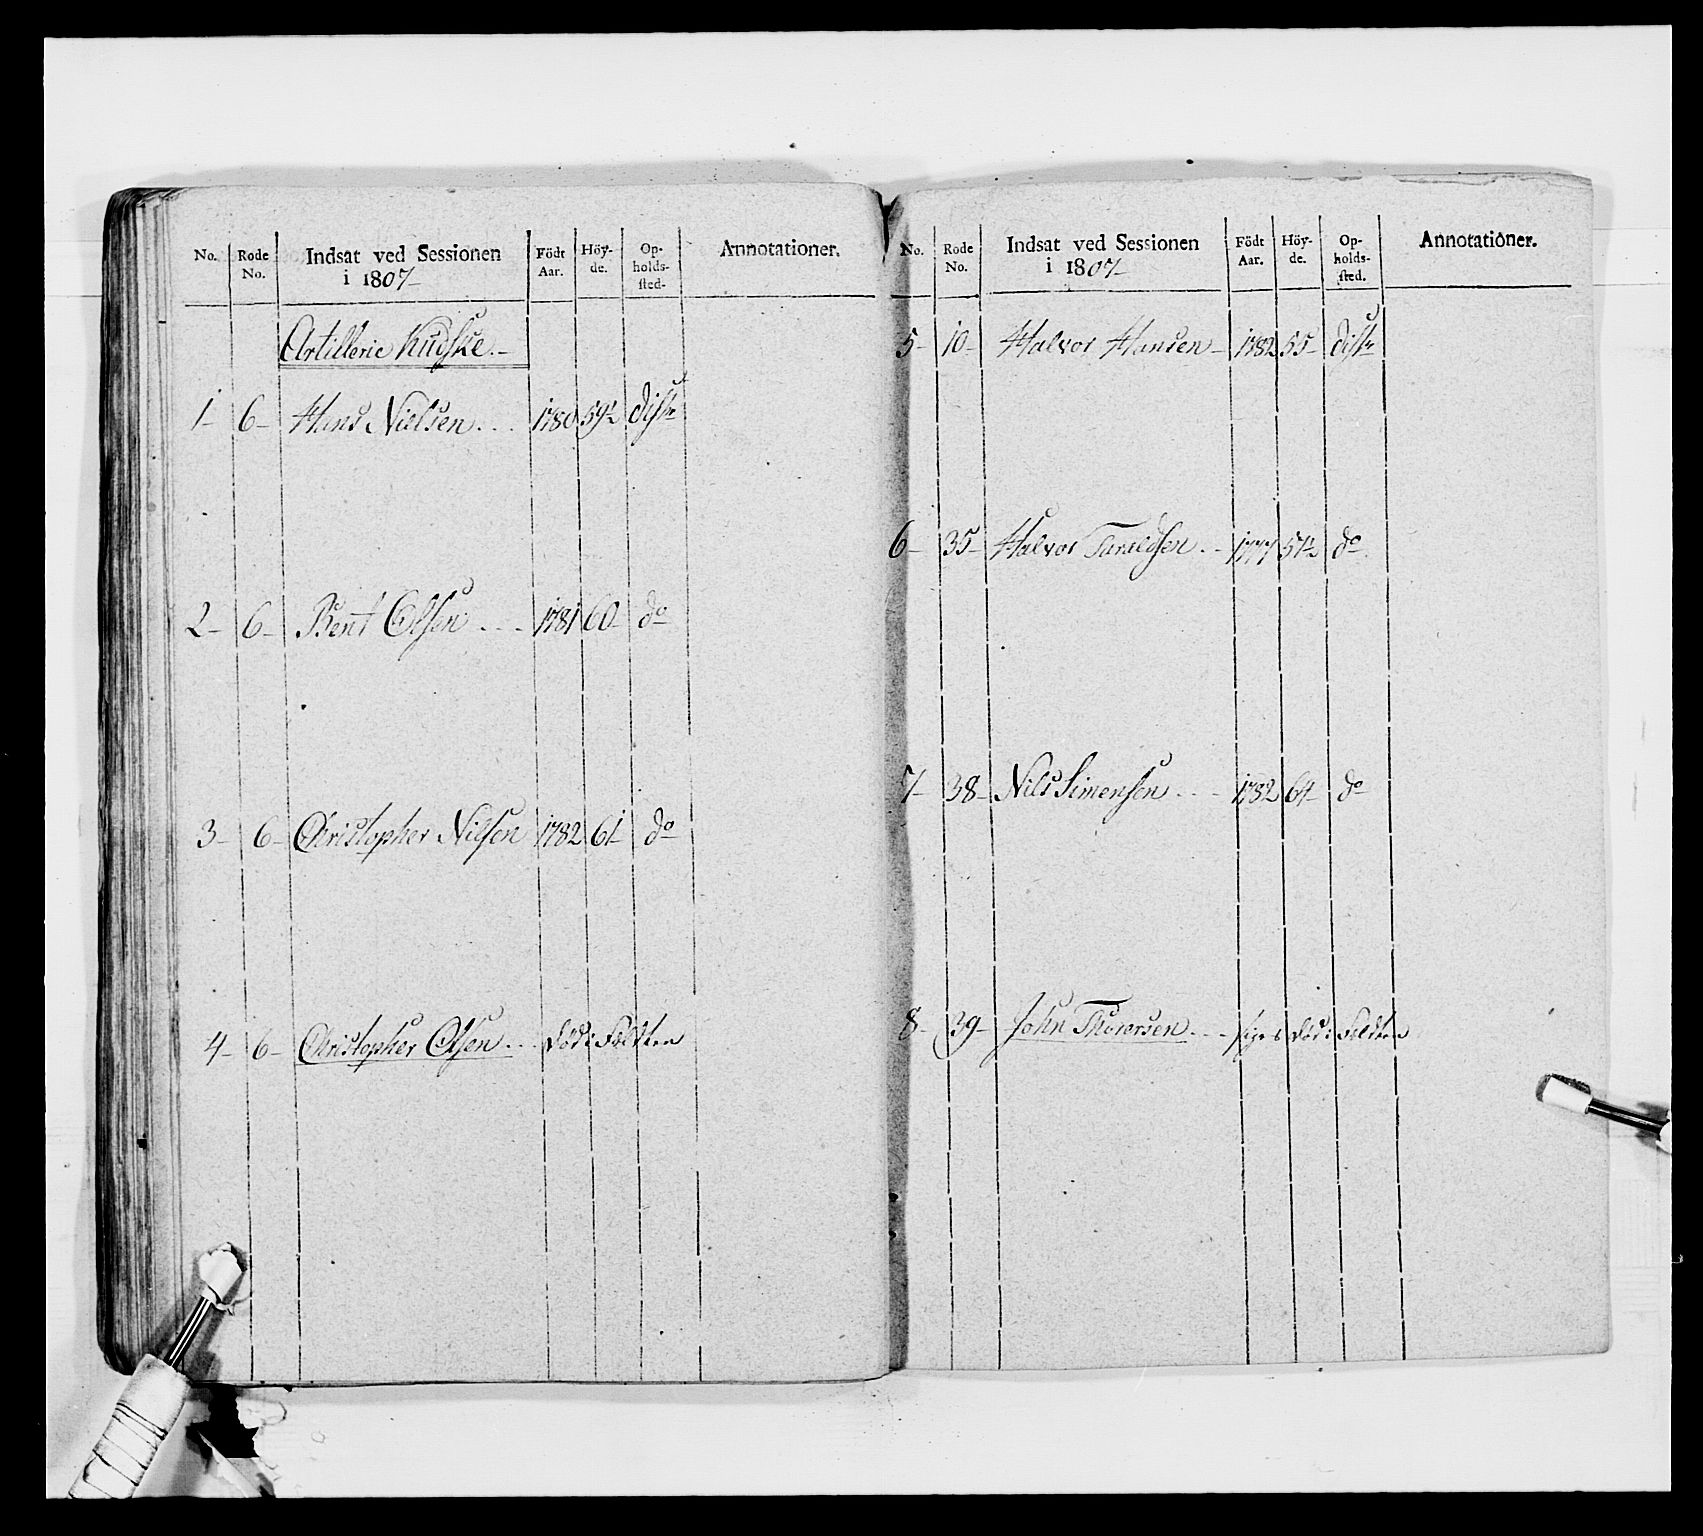 No. Rode No. Indsat ved Sessionen i 1807 Födt Aar. Höy-de. Op-holds-sted. Annotationer.
Artillerie Kudske.
1 6 Hans Nielsen 1780 59½ Distr
2 6 Bent Olsen 1781 60 do
3 6 Christopher Nilsen 1782 61 do
4 6 Christopher Olsen död i Feldten
No. Rode No. Indsat ved Sessionen i 1807 Födt Aar. Höy-de. Op-holds-sted. Annotationer.
5 10 Halvor Hansen 1782 55 Distr
6 35 Halvor Taraldsen 1777 57½ do
7 38 Nils Simensen 1782 64 do
8 39 John Thorersen siges död i Feldten